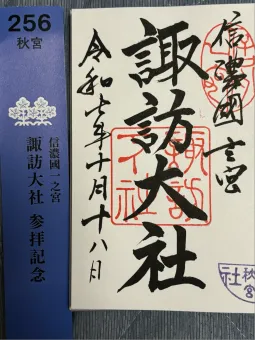 256
秋宮
信濃國一之宮
諏訪大社 参拝記念
信濃國一宮
諏訪大社
令和七年十月十八日
諏訪大社
秋宮
社